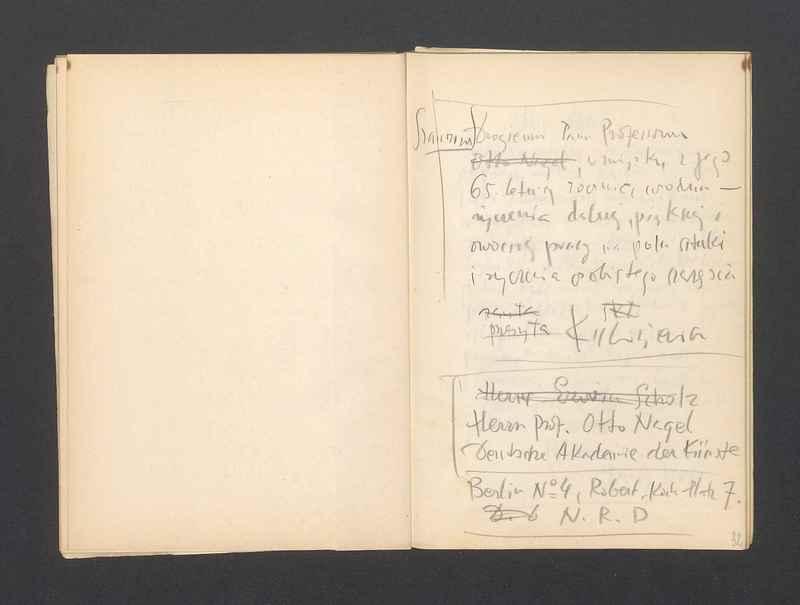 Szanown Drogiemu Panu Profesorowi
Otto Nagel, w związku z jego
65. letnią rocznicą urodzin —
życzenia dalszej, pięknej i
owocnej pracy na polu sztuki
i życzenia osobistego szczęścia
przesyła
Herrn Erwin Scholz
Herrn prof. Otto Nagel
Deutsche Akademie der Künste
Berlin Nº 4, Robert, Koch-Platz 7.
N. R. D
32